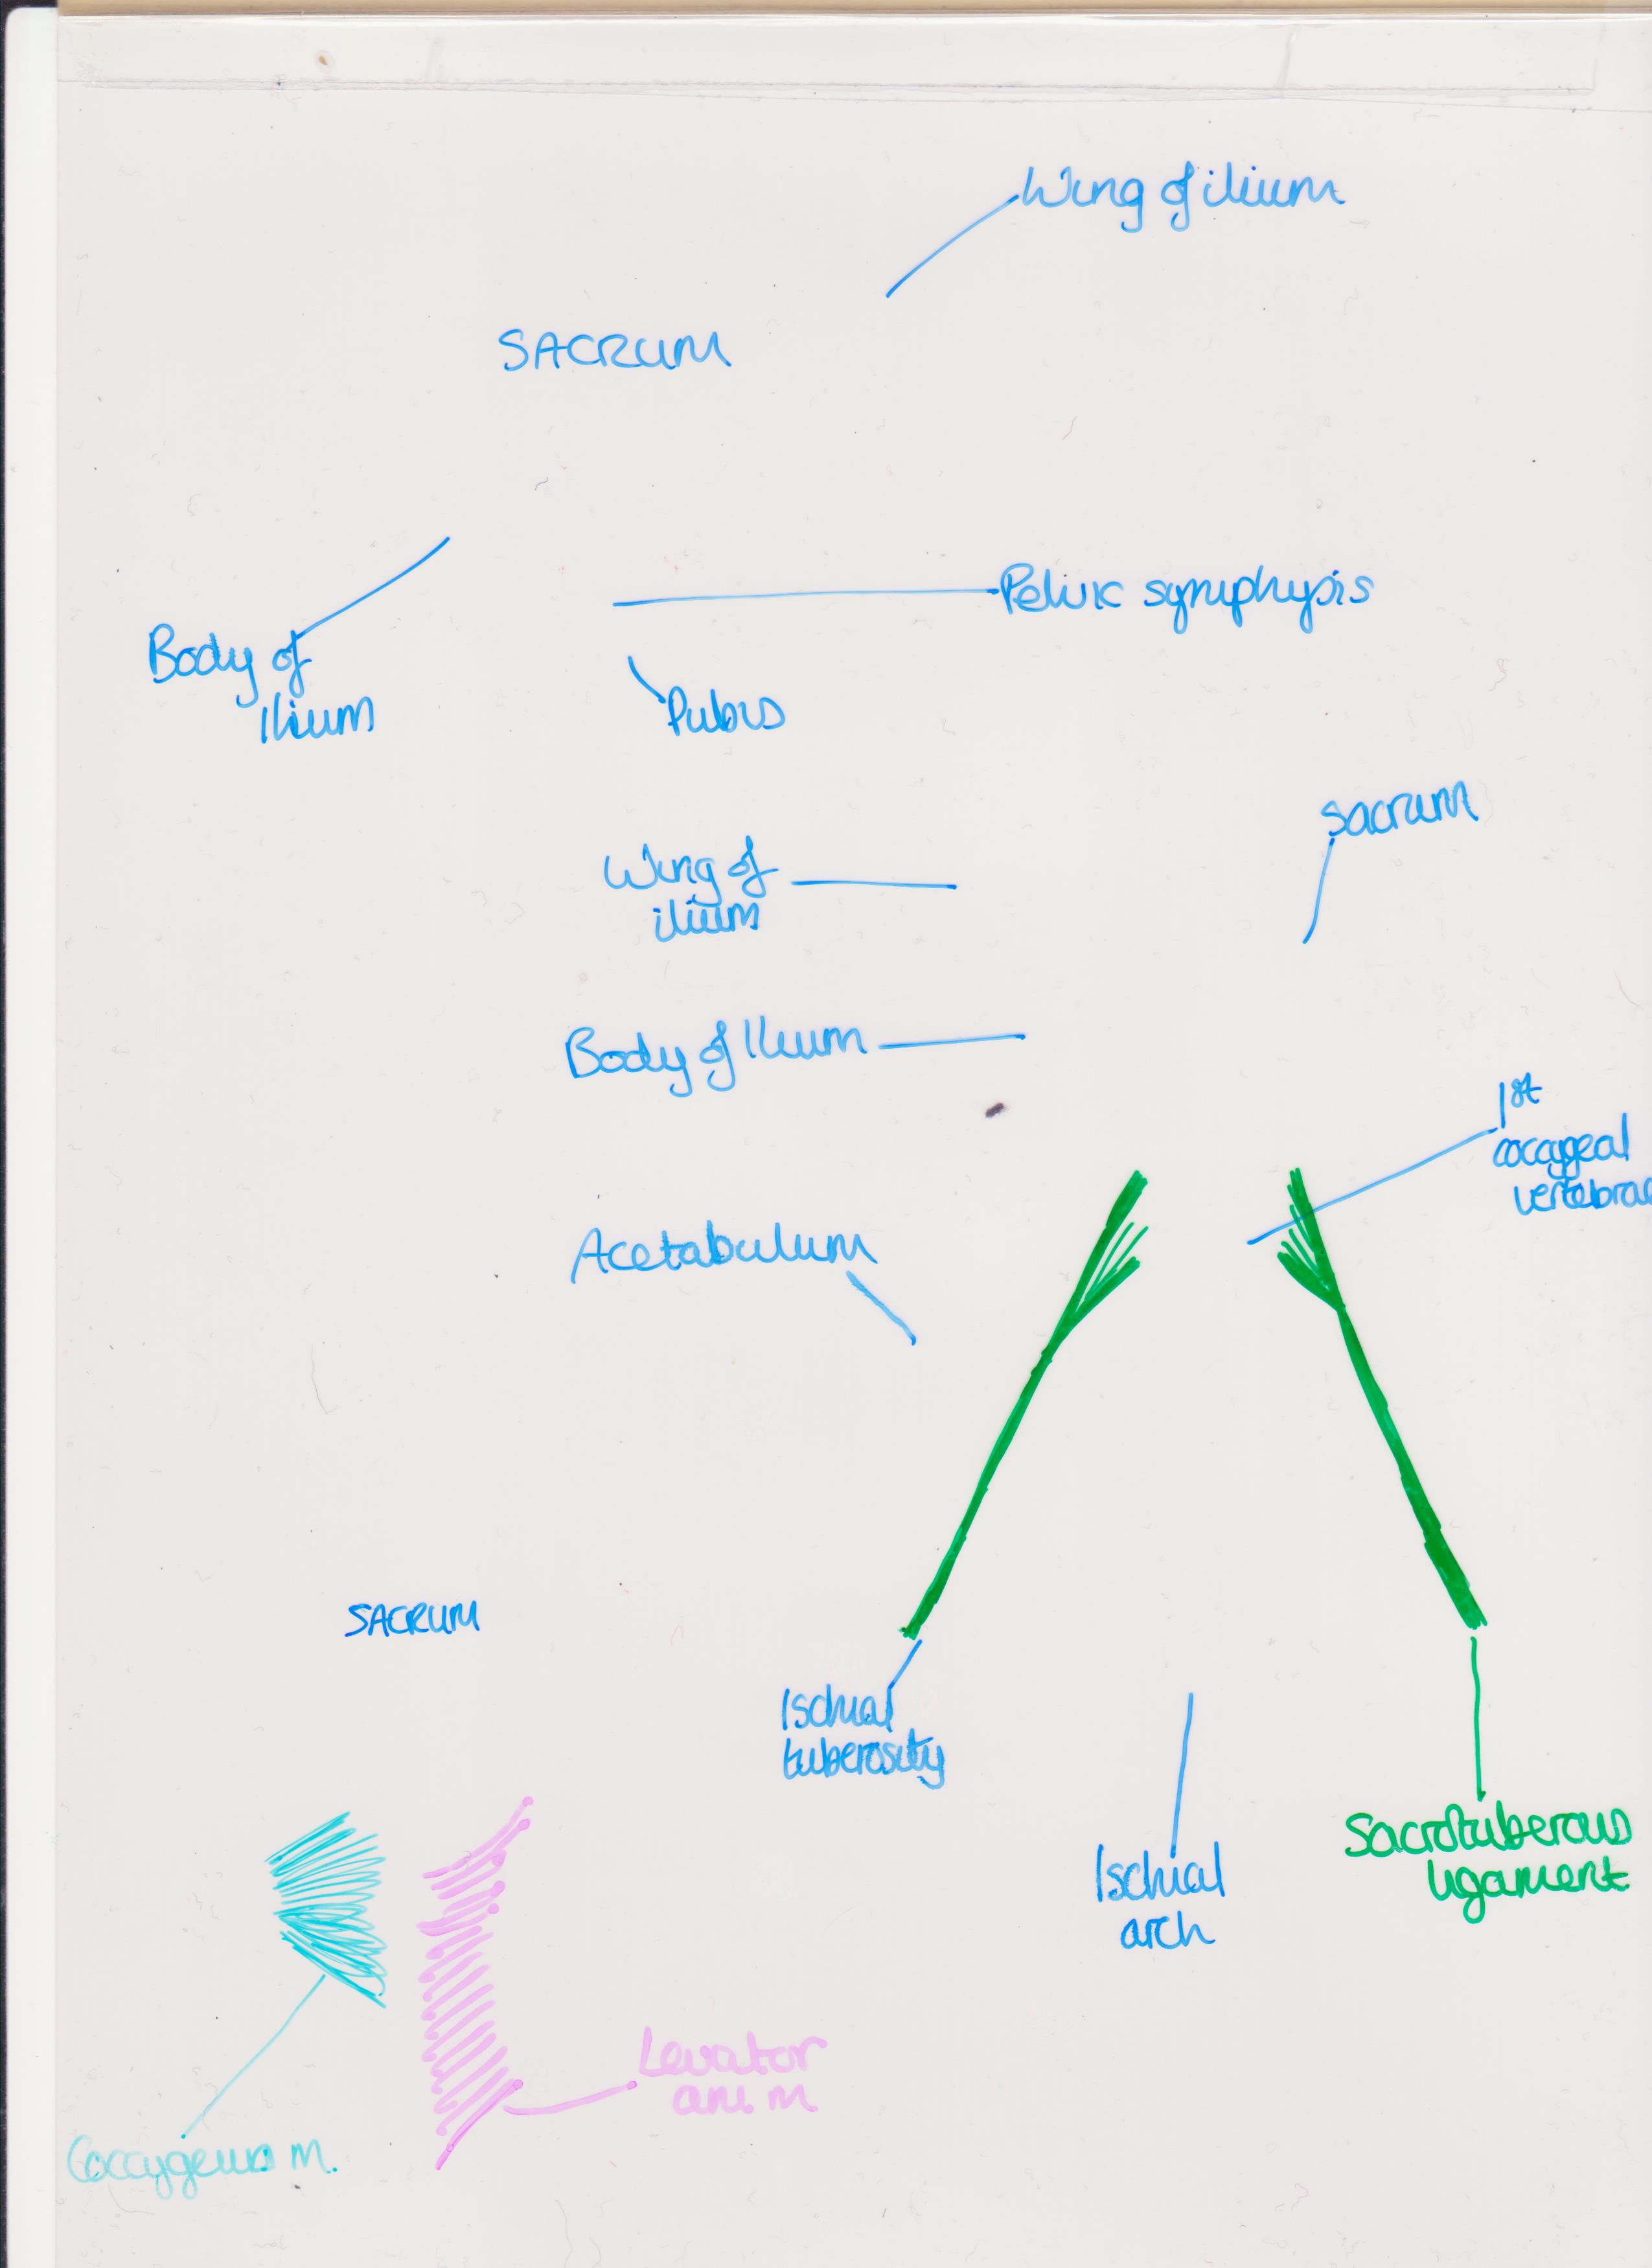 Wing of ilium
SACRUM
Pelvic symphysis
Body of
Ilium
Pubis
sacrum
Wing of
ilium
Body of Ilium
1st
coccygeal
vertebrae
Acetabulum
SACRUM
Ischial
tuberosity
Sacrotuberous
ligament
Ischial
arch
Levator
ani m
Coccygeus m.